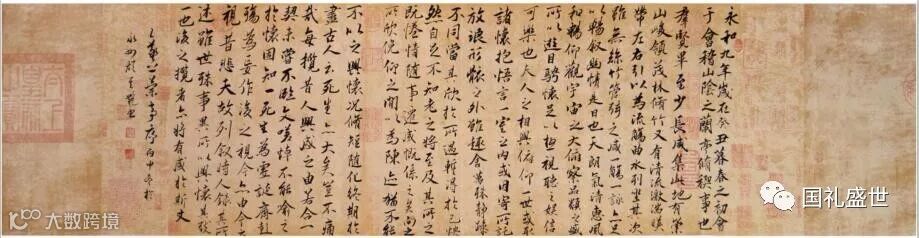 永和九年歲在癸丑暮春之初會
于會稽山陰之蘭亭脩稧事也
群賢畢至少長咸集此地有崇
山峻領茂林脩竹又有清流激湍映
帶左右引以為流觴曲水列坐其次
雖無絲竹管弦之盛一觴一詠亦足
以暢叙幽情是日也天朗氣清惠風
和暢仰觀宇宙之大俯察品類之盛
所以遊目騁懷足以極視聽之娛信
可樂也夫人之相與俯仰一世或取
諸懷抱悟言一室之內或因寄所託
放浪形骸之外雖趣舍萬殊靜躁
不同當其欣於所遇暫得於己怏
然自足不知老之將至及其所之
既惓情隨事遷感慨係之矣向之
所欣俛仰之間以為陳迹猶不能
不以之興懷況脩短隨化終期於
盡古人云死生亦大矣豈不痛
哉每攬昔人興感之由若合一
契未嘗不臨文嗟悼不能喻之
於懷固知一死生為虛誕齊彭
殤為妄作後之視今亦由今之
視昔悲夫故列叙時人錄其所
述雖世殊事異所以興懷其致
一也後之攬者亦將有感於斯文
王羲之蘭亭序
大数跨境
国礼盛世